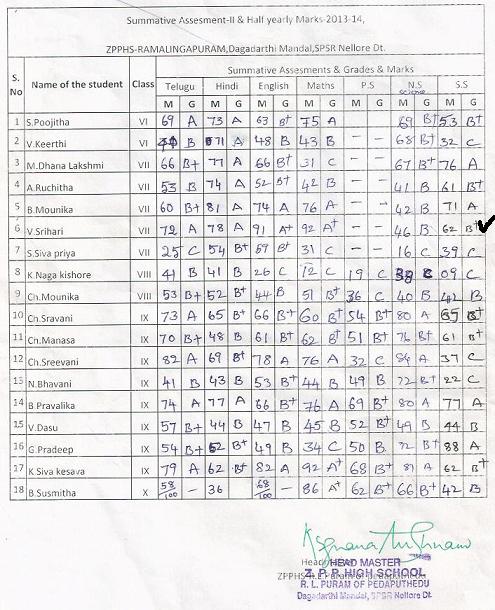 Summative Assesment-II & Half yearly Marks-2013-14,
ZPPHS-RAMALINGAPURAM,Dagadarthi Mandal,SPSR Nellore Dt.
S. No Name of the student Class Summative Assesments & Grades & Marks
Telugu Hindi English Maths P.S N.S science S.S
M G M G M G M G M G M G M G
1 S.Poojitha VI 69 A 73 A 63 B+ 75 A 69 B+ 53 B+
2 V.Keerthi VI B 71 A 48 B 43 B - - 68 B+ 32 C
3 M.Dhana Lakshmi VII 66 B+ 77 A 66 B+ 31 C - - 67 B+ 76 A
4 A.Ruchitha VII 53 B 74 A 52 B+ 42 B - - 41 B 61 B+
5 B.Mounika VII 60 B+ 81 A 74 A 76 A - - 42 B 71 A
6 V.Srihari VII 72 A 78 A 91 A+ 92 A+ - - 46 B 62 B+
7 S.Siva priya VII 25 C 54 B+ 57 B+ 31 C 16 C 39 C
8 K.Naga kishore VIII 41 B 41 B 26 C 12 C 19 C C 09 C
9 Ch.Mounika VIII 53 B+ 52 B+ 44 B 51 B+ 36 C 40 B 42 B
10 Ch.Sravani IX 73 A 65 B+ 66 B+ 60 B+ 54 B+ 80 A 65 B+
11 Ch.Manasa IX 70 B+ 48 B 61 B+ 62 B+ 51 B+ 76 B+ 61 B+
12 Ch.Sreevani IX 82 A 69 B+ 78 A 76 A 32 C 84 A 37 C
13 N.Bhavani IX 41 B 43 B 53 B+ 44 B 49 B 72 B+ 22 C
14 B.Pravalika IX 74 A 77 A 66 B+ 76 A 69 B+ 80 A 77 A
15 V.Dasu IX 57 B+ 44 B 47 B 45 B 52 B+ 49 B 44 B
16 G.Pradeep IX 54 B+ 52 B+ 49 B 34 C 50 B 72 B+ 88 A
17 K Siva kesava IX 79 A 62 B+ 82 A 92 A+ 68 B+ 81 A 62 B+
18 B.Susmitha X 58/100 - 36 68/100 - 86 A+ 62 B+ 66 B+ 42 B
HEAD MASTER
Z. P. P. HIGH SCHOOL
R. L. PURAM OF PEDAPUTHEDU
Dagadarthi Mandal, SPSR Nellore Dt.